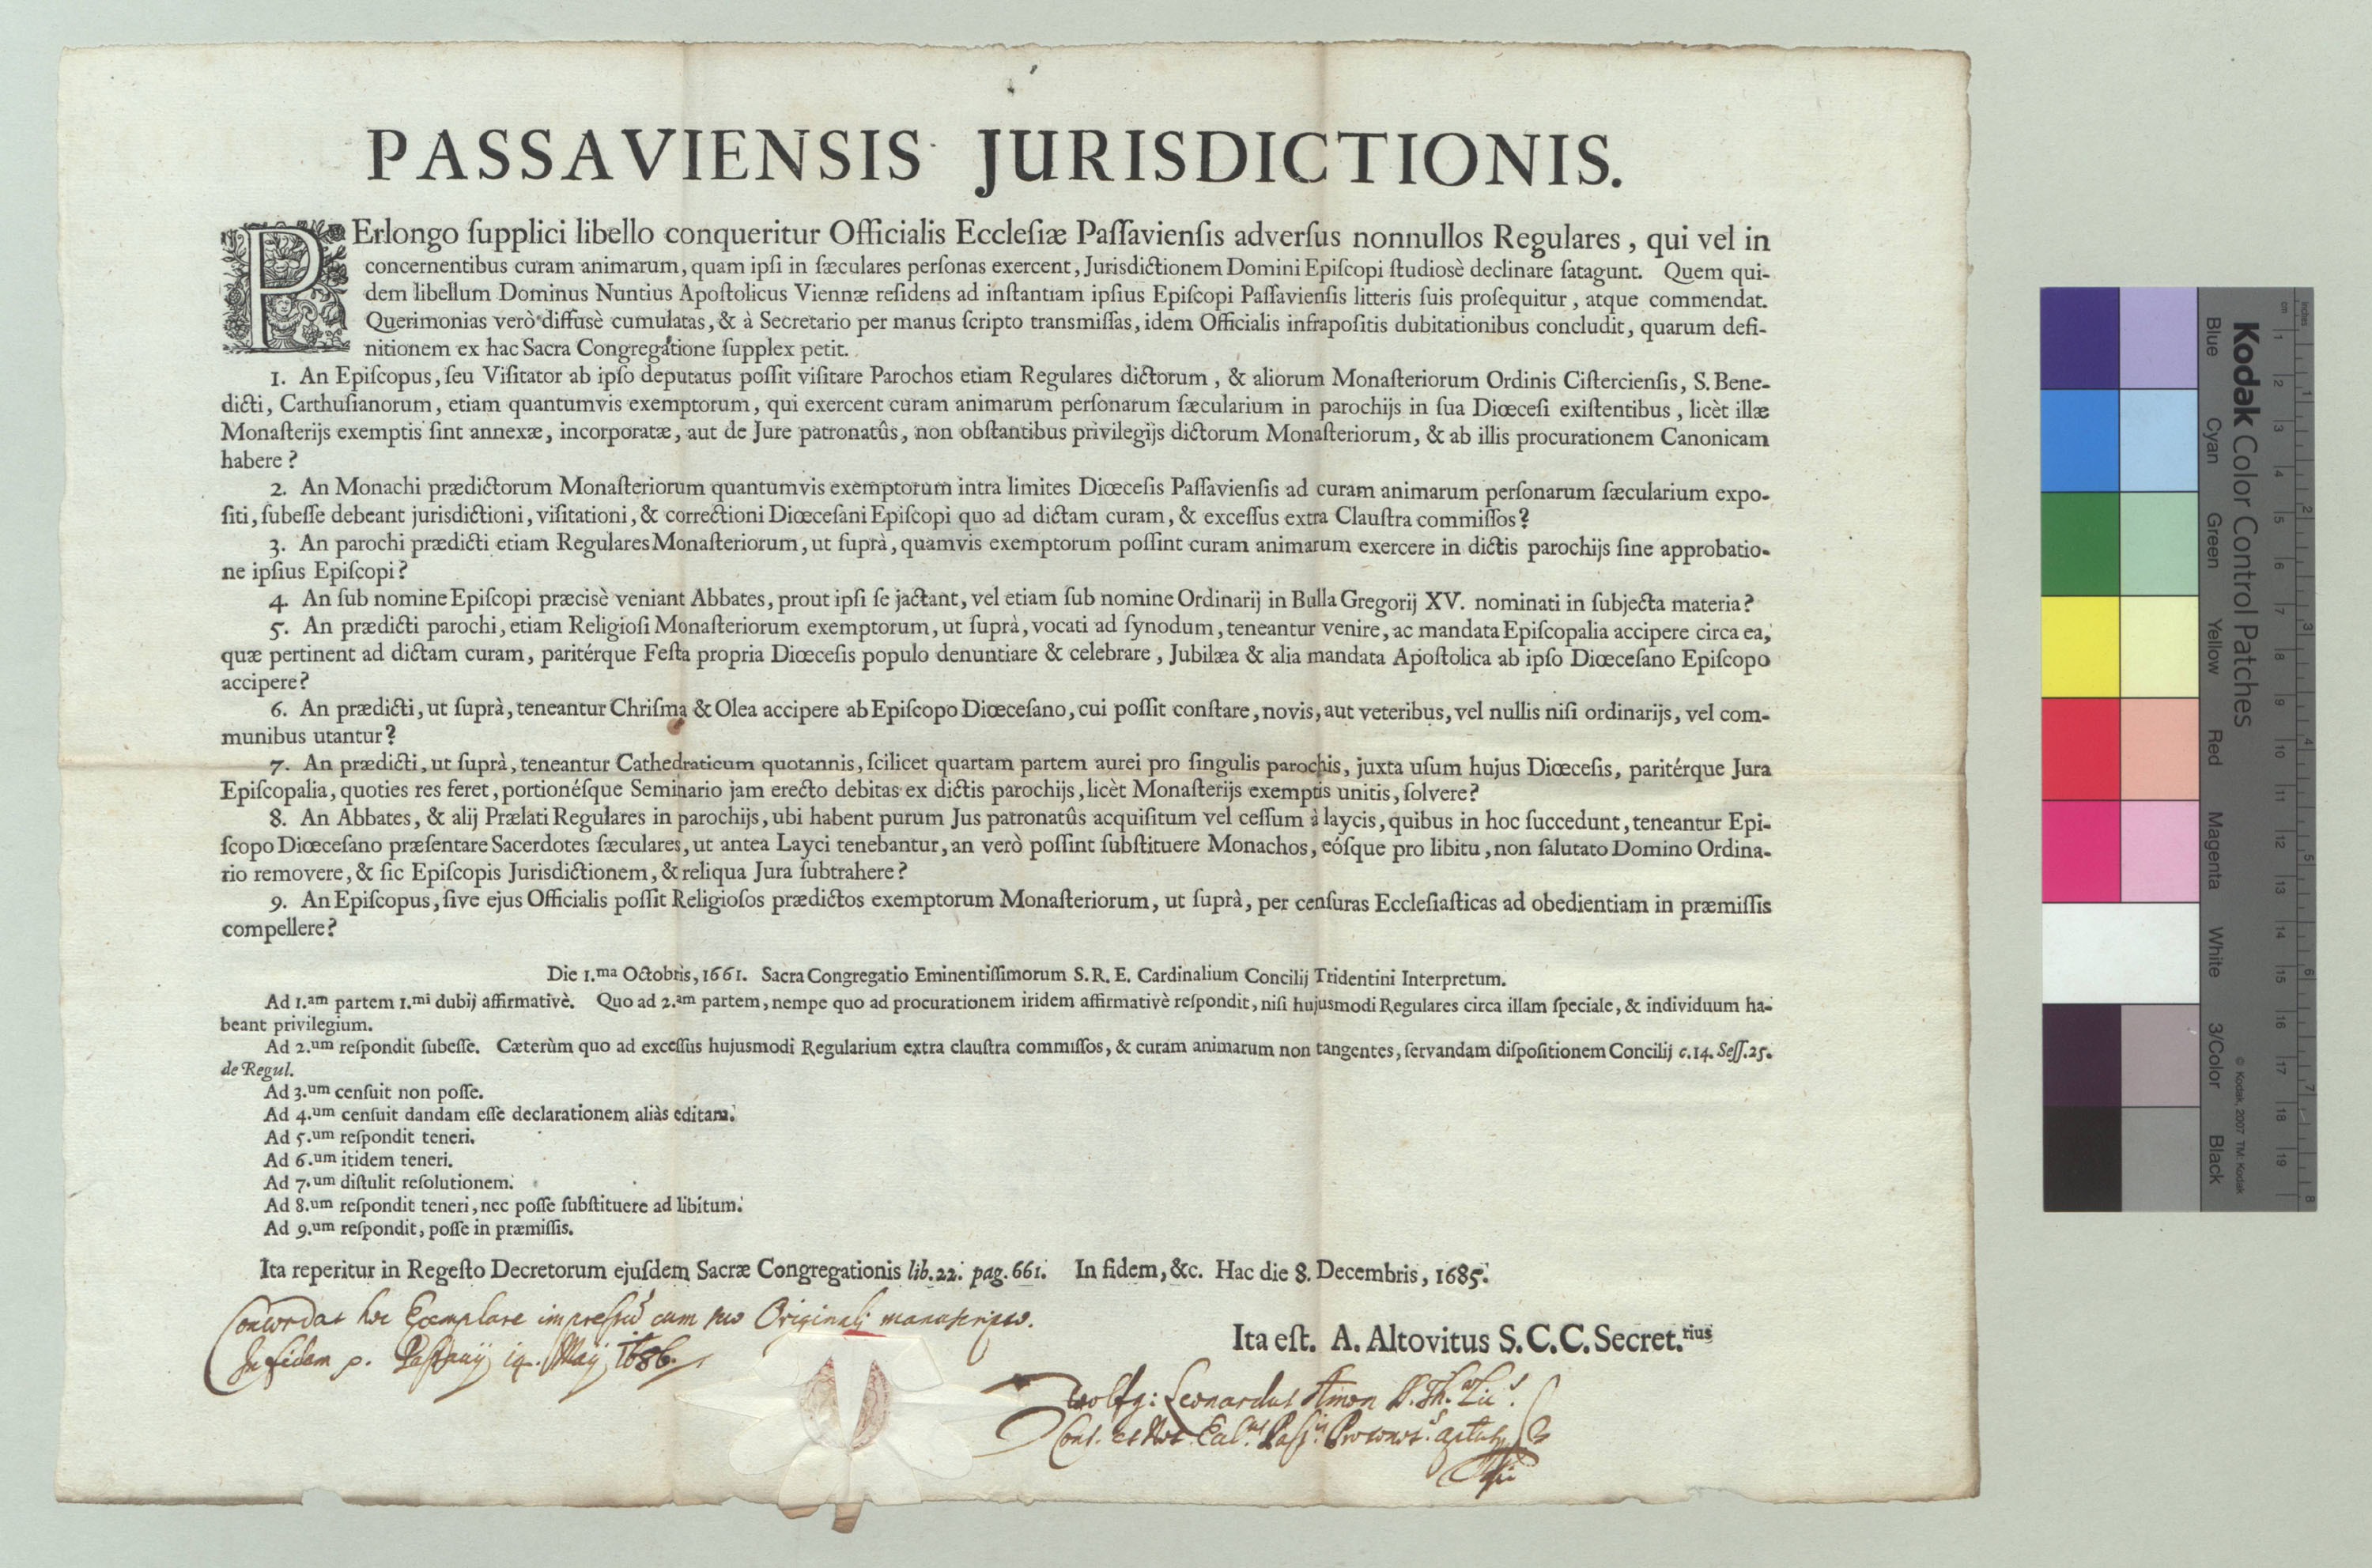 PASSAVIENSIS JURISDICTIONIS.
PErlongo ſupplici libello conqueritur Officialis Eccleſiæ Paſſavienſis adverſus nonnullos Regulares, qui vel in
concernentibus curam animarum, quam ipſi in ſæculares perſonas exercent, Jurisdictionem Domini Epiſcopi ſtudiosè declinare ſatagunt. Quem qui-
dem libellum Dominus Nuntius Apoſtolicus Viennæ reſidens ad inſtantiam ipſius Epiſcopi Paſſavienſis litteris ſuis proſequitur, atque commendat.
Querimonias verò diffusè cumulatas, & à Secretario per manus ſcripto transmiſſas, idem Officialis infrapoſitis dubitationibus concludit, quarum defi-
nitionem ex hac Sacra Congregatione ſupplex petit.
1. An Epiſcopus, ſeu Viſitator ab ipſo deputatus poſſit viſitare Parochos etiam Regulares dictorum, & aliorum Monaſteriorum Ordinis Ciſtercienſis, S. Bene-
dicti, Carthuſianorum, etiam quantumvis exemptorum, qui exercent curam animarum perſonarum ſæcularium in parochijs in ſua Diœceſi exiſtentibus, licèt illæ
Monaſterijs exemptis ſint annexæ, incorporatæ, aut de Jure patronatûs, non obſtantibus privilegijs dictorum Monaſteriorum, & ab illis procurationem Canonicam
habere?
2. An Monachi prædictorum Monaſteriorum quantumvis exemptorum intra limites Diœceſis Paſſavienſis ad curam animarum perſonarum ſæcularium expo-
ſiti, ſubeſſe debeant jurisdictioni, viſitationi, & correctioni Diœceſani Epiſcopi quo ad dictam curam, & exceſſus extra Clauſtra commiſſos?
3. An parochi prædicti etiam Regulares Monaſteriorum, ut ſuprà, quamvis exemptorum poſſint curam animarum exercere in dictis parochijs ſine approbatio-
ne ipſius Epiſcopi?
4. An ſub nomine Epiſcopi præcisè veniant Abbates, prout ipſi ſe jactant, vel etiam ſub nomine Ordinarij in Bulla Gregorij XV. nominati in ſubjecta materia?
5. An prædicti parochi, etiam Religioſi Monaſteriorum exemptorum, ut ſuprà, vocati ad ſynodum, teneantur venire, ac mandata Epiſcopalia accipere circa ea,
quæ pertinent ad dictam curam, paritérque Feſta propria Diœceſis populo denuntiare & celebrare, Jubilæa & alia mandata Apoſtolica ab ipſo Diœceſano Epiſcopo
accipere?
6. An prædicti, ut ſuprà, teneantur Chriſma & Olea accipere ab Epiſcopo Diœceſano, cui poſſit conſtare, novis, aut veteribus, vel nullis niſi ordinarijs, vel com-
munibus utantur?
7. An prædicti, ut ſuprà, teneantur Cathedraticum quotannis, ſcilicet quartam partem aurei pro ſingulis parochis, juxta uſum hujus Diœceſis, paritérque Jura
Epiſcopalia, quoties res feret, portionéſque Seminario jam erecto debitas ex dictis parochijs, licèt Monaſterijs exemptis unitis, ſolvere?
8. An Abbates, & alij Prælati Regulares in parochijs, ubi habent purum Jus patronatûs acquiſitum vel ceſſum à laycis, quibus in hoc ſuccedunt, teneantur Epi-
ſcopo Diœceſano præſentare Sacerdotes ſæculares, ut antea Layci tenebantur, an verò poſſint ſubſtituere Monachos, eóſque pro libitu, non ſalutato Domino Ordina-
rio removere, & ſic Epiſcopis Jurisdictionem, & reliqua Jura ſubtrahere?
9. An Epiſcopus, ſive ejus Officialis poſſit Religioſos prædictos exemptorum Monaſteriorum, ut ſuprà, per cenſuras Eccleſiaſticas ad obedientiam in præmiſſis
compellere?
Die 1.ma Octobris, 1661. Sacra Congregatio Eminentiſſimorum S. R. E. Cardinalium Concilij Tridentini Interpretum.
Ad 1.am partem 1.mi dubij affirmativè. Quo ad 2.am partem, nempe quo ad procurationem iridem affirmativè reſpondit, niſi hujusmodi Regulares circa illam ſpeciale, & individuum ha-
beant privilegium.
Ad 2.um reſpondit ſubeſſe. Cæterùm quo ad exceſſus hujusmodi Regularium extra clauſtra commiſſos, & curam animarum non tangentes, ſervandam diſpoſitionem Concilij c. 14. Seſſ. 25.
de Regul.
Ad 3.um cenſuit non poſſe.
Ad 4.um cenſuit dandam eſſe declarationem aliàs editam.
Ad 5.um reſpondit teneri.
Ad 6.um itidem teneri.
Ad 7.um diſtulit reſolutionem.
Ad 8.um reſpondit teneri, nec poſſe ſubſtituere ad libitum.
Ad 9.um reſpondit, poſſe in præmiſſis.
Ita reperitur in Regeſto Decretorum ejuſdem Sacræ Congregationis lib. 22. pag. 661. In fidem, &c. Hac die 8. Decembris, 1685.
Concordat hoc Exemplare impreſsũ cum suo Originali manuscripto.
In fidem p. Paſſavij 14. Maij 1686.
Ita eſt. A. Altovitus S. C. C. Secret.rius
Wolfg: Leonardus Amon
Conſ. et Not.
Kodak Color Control Patches
Blue
Cyan
Green
Yellow
Red
Magenta
White
3/Color
Black
© Kodak, 2007 TM: Kodak
cm 1 2 3 4 5 6 7 8 9 10 11 12 13 14 15 16 17 18 19
inches 1 2 3 4 5 6 7 8